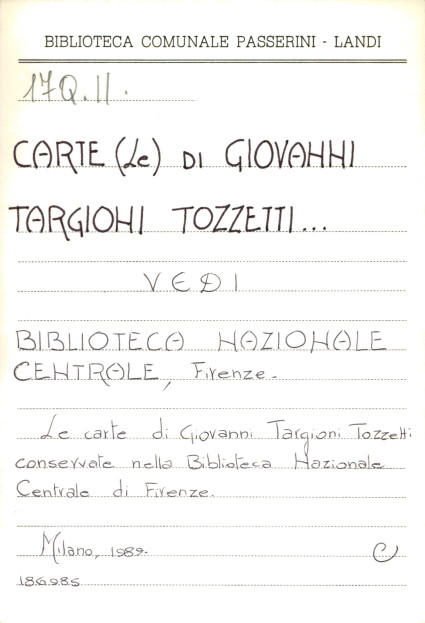 BIBLIOTECA COMUNALE PASSERINI - LANDI
17Q.II.
CARTE (Le) DI GIOVANNI
TARGIONI TOZZETTI...
VEDI
BIBLIOTECA NAZIONALE
CENTRALE, Firenze.
Le carte di Giovanni Targioni Tozzetti
conservate nella Biblioteca Nazionale
Centrale di Firenze.
Milano, 1989. C
186985